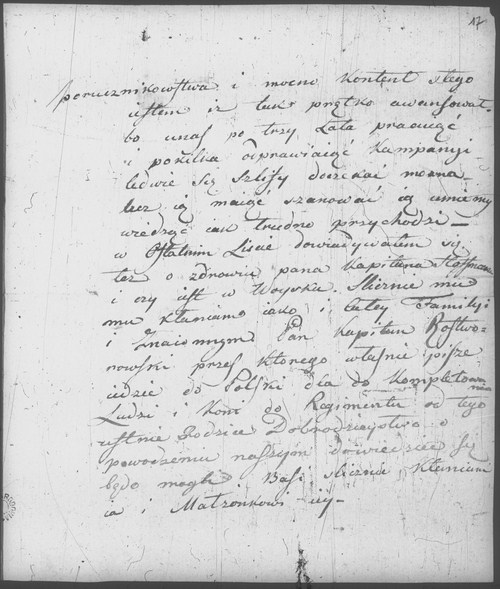 17
porucznikowstwa i mocno kontent z tego
iestem iż tak prętko awansował
bo unas po trzy Lata pracuiąć
i pokilka odprawiaiąć kampanyi
ledwie się szlify doczekać można
lecz ią maiąć szanować ią umiemy
wiedząć iak trudno przychodzi —
w Ostatnim Liscie dowiadywałem się
tez o zdrowiu pana Kapitana
i czy iest w Woysku. Slicznie mu
mu kłaniamy iako i całey Familyi
i Znaiomym Pan Kapitan Rostwo-
rowski przes ktorego własnie pisze
iedzie do Polski dla do kompletowania
Ludzi i Koni do Regimentu od tego
ustnie Rodzice Dobrodzieystwo o
powodzeniu naszym dowiedzieć się
będą mogli. Basi slicznie kłaniam
ia i Małżonkowi iey —